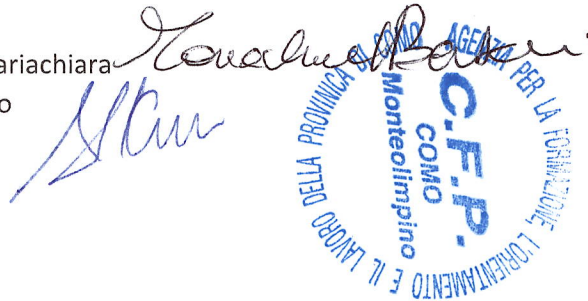 ariachiara
o
AGENZIA PER LA FORMAZIONE, L'ORIENTAMENTO E IL LAVORO DELLA PROVINICA DI COMO
C.F.P.
COMO
Monteolimpino